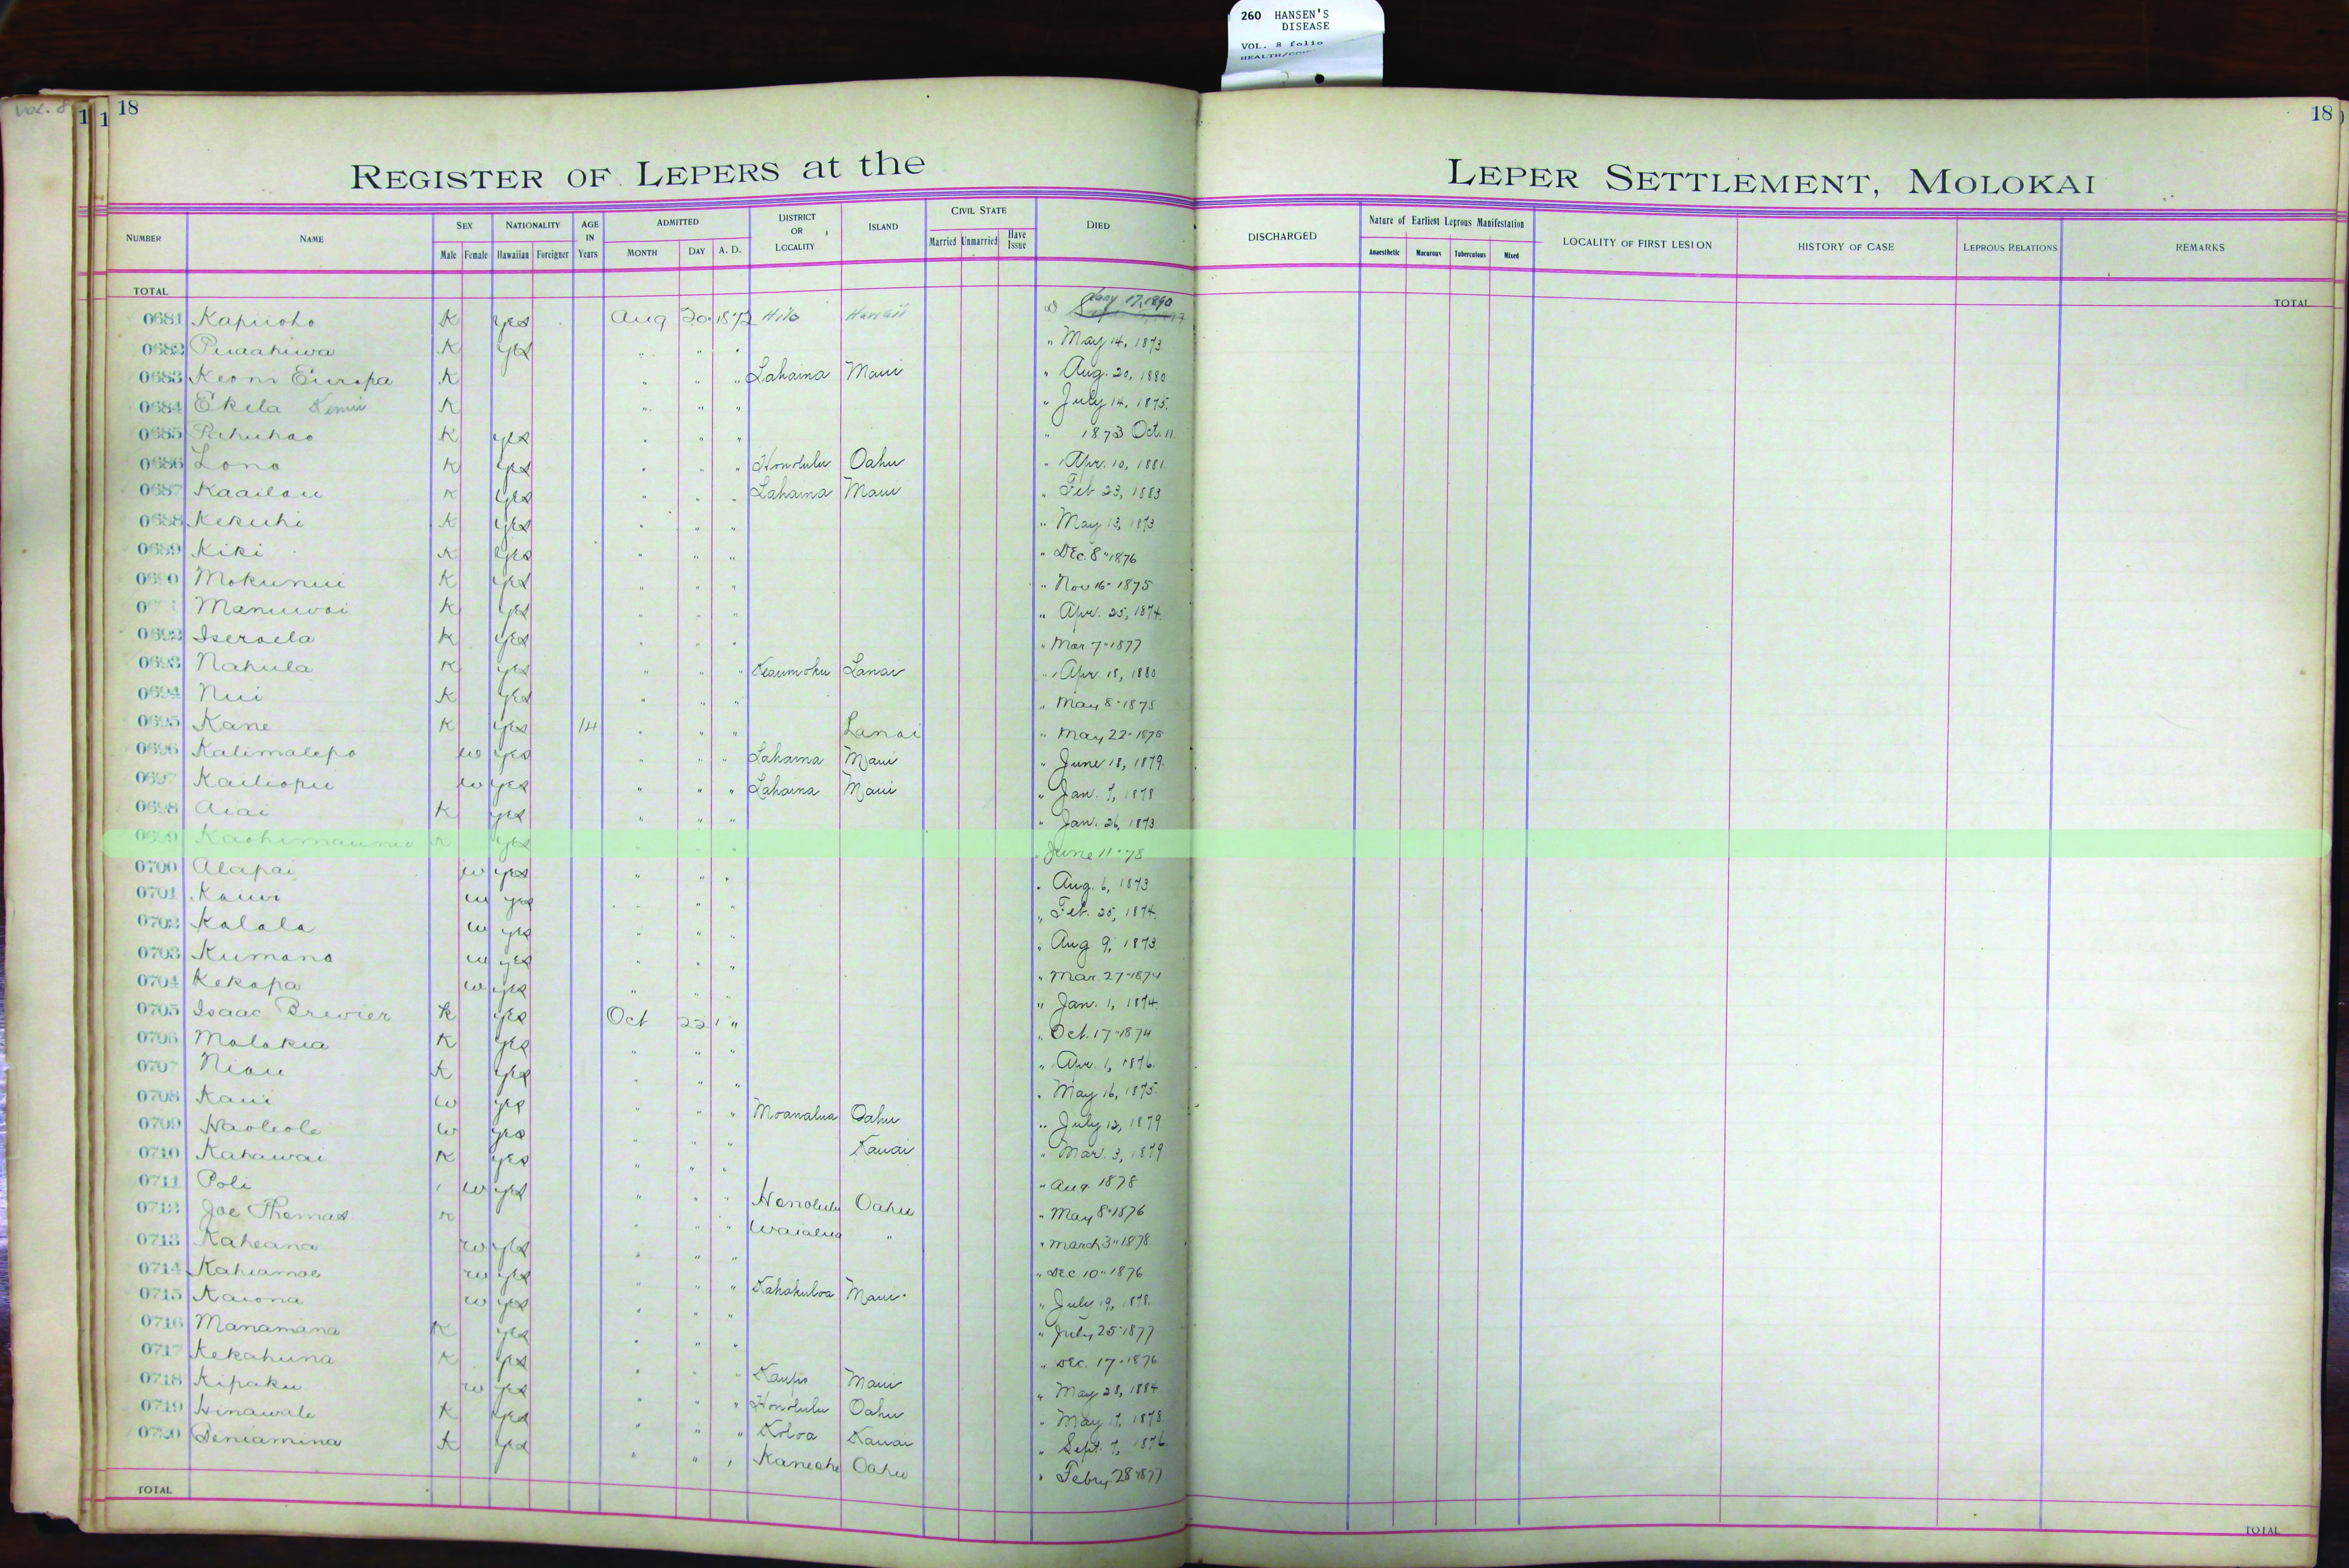 260 HANSEN'S
DISEASE
VOL. 8 folio
VOL. 8
18
18
REGISTER OF LEPERS at the LEPER SETTLEMENT, MOLOKAI
NUMBER NAME SEX Male Female NATIONALITY Hawaiian Foreigner AGE IN Years ADMITTED MONTH DAY A. D. DISTRICT OR LOCALITY ISLAND CIVIL STATE Married Unmarried Have Issue DIED DISCHARGED Nature of Earliest Leprous Manifestation Anaesthetic Macurous Tuberculous Mixed LOCALITY OF FIRST LESION HISTORY OF CASE LEPROUS RELATIONS REMARKS
TOTAL TOTAL
0681 Kapuoho K yes Aug 20 1872 Hilo Hawaii Jany 17, 1890
0682 Puaahiwa K yes " " " " May 14, 1873
0683 Keoni Europa K " " " Lahaina Maui " Aug. 20, 1880
0684 Ekela K " " " " July 14, 1875.
0685 Pahuhao K yes " " " " 1873 Oct. 11.
0686 Lono K yes " " " Honolulu Oahu " Apr. 10, 1881.
0687 Kaailau K yes " " " Lahaina Maui " Feb 23, 1883
0688 Kekuhi K yes " " " " May 13, 1873
0689 Kiki K yes " " " " DEc. 8" 1876
0690 Mokunui K yes " " " " Nov 16" 1875
Manuwai K yes " " " " Apr. 25, 1874.
0692 Iseraela K yes " " " " Mar 7" 1877
0693 Nahula K yes " " " Keaumoku Lanai " Apr. 18, 1880
0694 Nui K yes " " " " May 8" 1875
0695 Kane K yes 14 " " " Lanai " May 22" 1875
0696 Kalimalepo w yes " " " Lahaina Maui " June 18, 1879.
0697 Kailiopu w yes " " " Lahaina Maui " Jan. 7, 1878
0698 Aiai K yes " " " " Jan. 26, 1873
0699 Kaohimaunu K yes " " " " June 11" 78
0700 Alapai w yes " " " " Aug. 6, 1873
0701 Kauwi w yes " " " " Feb. 25, 1874.
0702 Kalala w yes " " " " Aug 9, 1873.
0703 Kumano w yes " " " " Mar 27" 1874
0704 Kekapa w yes " " " " Jan. 1, 1874.
0705 Isaac Brewier K yes Oct 22 " " Oct. 17" 1874
0706 Malokia K yes " " " " Apr. 1, 1876.
0707 Niau K yes " " " " May 16, 1875.
0708 Kaui w yes " " " Moanalua Oahu " July 12, 1879
0709 Haoleole w yes " " " Kauai " Mar. 3, 1879
0710 Kahawai K yes " " " " Aug 1878
0711 Poli w yes " " " Honolulu Oahu " May 8" 1876
0712 Joe Thomas K " " " Waialua " " March 3" 1878
0713 Kaheana w yes " " " " DEC 10" 1876
0714 Kahiamoe w yes " " " Kahakuloa Maui " July 19, 1878.
0715 Kaiona w yes " " " " July 25" 1877
0716 Manamana K yes " " " " DEC. 17" 1876
0717 Kekahuna K yes " " " Kaupo Maui " May 28, 1884
0718 Kipaku w yes " " " Honolulu Oahu " May 17, 1878.
0719 Hinawale K yes " " " Koloa Kauai " Sept. 7, 1876.
0720 Beniamina K yes " " " Kaneohe Oahu " Febry. 28" 1877
TOTAL TOTAL